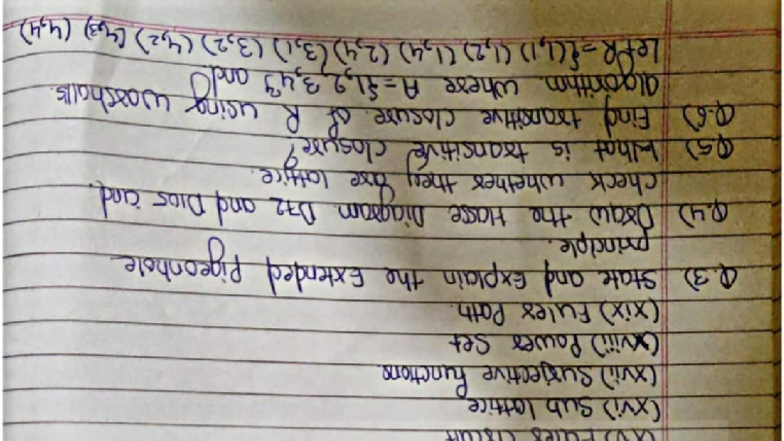 (xv) Euler Circuit
(xvi) Sub lattice
(xvii) Surjective Functions
(xviii) Power Set
(xix) Euler Path.
Q.3) State and Explain the Extended Pigeonhole
principle.
Q.4) Draw the Hasse Diagram D72 and D105 and
check whether they are lattice.
Q.5) What is transitive closure?
Q.6) Find transitive closure of R using warshalls
algorithm. where A = {1,2,3,4} and
Let R = {(1,1) (1,2) (1,4) (2,4) (3,1) (3,2) (4,2) (4,3) (4,4)